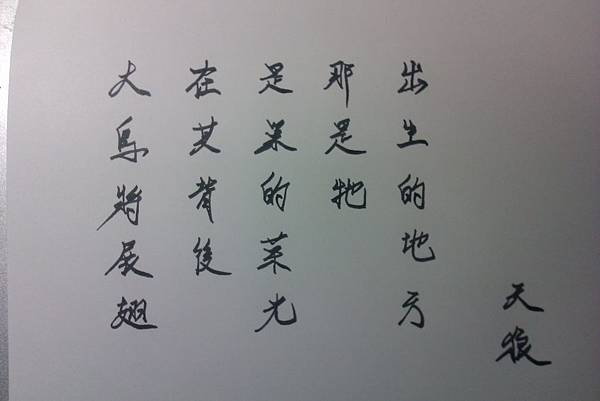 天狼
出生的地方
那是牠
是巢的荣光
在其背後
大鳥將展翅